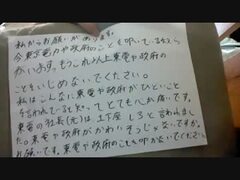 私からお願いがあります。
今東京電力や政府のことを叩いている人
がいます。もうこれ以上東電や政府の
ことをいじめないでください。
私はこんなに東電や政府がひどいこと
を言われていると知ってとても心が痛いです。
東電の社長(元)は土下座しろと言われまし
た。東電や政府がかわいそうじゃないですか。
お願いです。東電や政府のことを叩かないでください